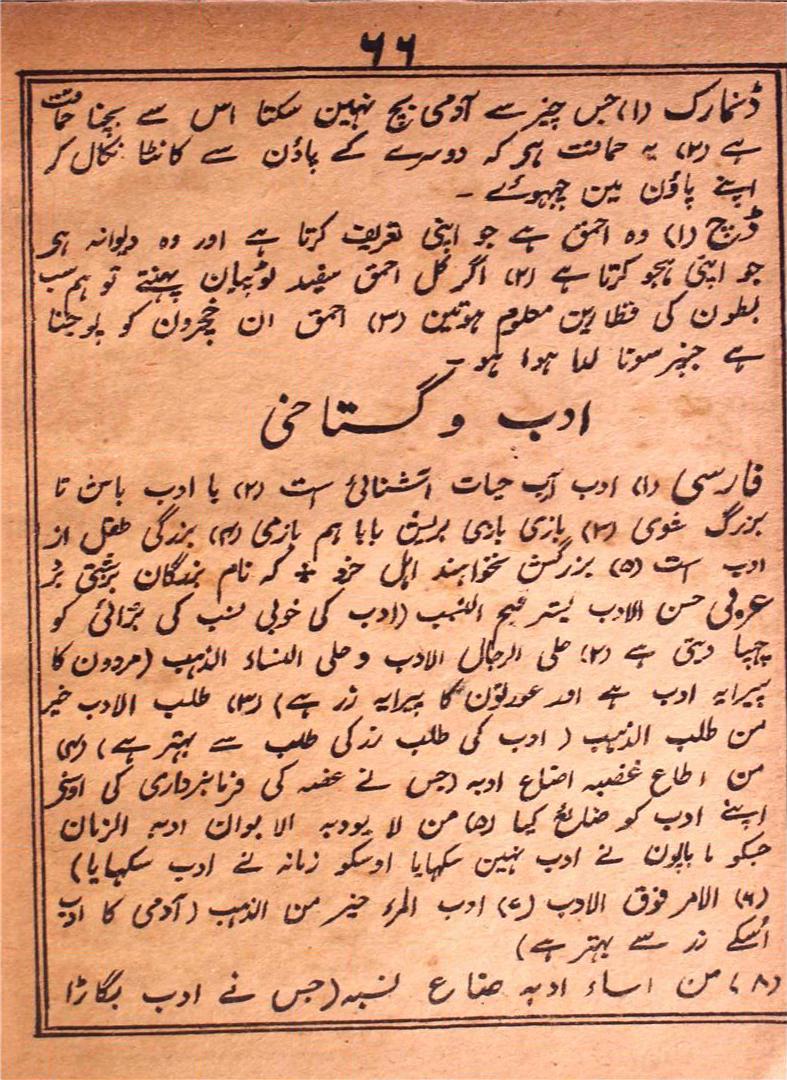 ۶۶
ڈنمارک (۱) جس چیز سے آدمی بچ نہین سکتا اس سے بچنا حماقت
ہے (۲) یہ حماقت ہی کہ دوسرے کے پاؤن سے کانٹا نکال کر
اپنے پاؤن مین چبہوئے ۔
ڈچ (۱) وہ احمق ہے جو اپنی تعریف کرتا ہے اور وہ دیوانہ ہی
جو اپنی ہجو کرتا ہے (۲) اگر کل احمق سفید ٹوپیان پہنتے تو ہم سب
بطون کی قطارین معلوم ہوتین (۳) احمق ان خچرون کو پوجتا
ہے جنپر سونا لدا ہوا ہو ۔
ادب و گستاخی
فارسی (۱) ادب آب حیات آشنائی است (۲) با ادب باش تا
بزرگ شوی (۳) بازی بازی بریش بابا ہم بازمی (۴) بزرگی طفل از
ادب است (۵) بزرگش نخوانند اہل خرد * کہ نام بزرگان بزشتی برد
عربی حسن الادب یستر قبح النسب (ادب کی خوبی نسب کی بڑائی کو
چہپا دیتی ہے (۲) حلی الرجال الادب و حلی النساء الذہب (مردون کا
پیرایہ ادب ہے اور عورتون کا پیرایہ زر ہے) (۳) طلب الادب خیر
من طلب الذہب (ادب کی طلب زر کی طلب سے بہتر ہے) (۴)
من اطاع غضبہ اضاع ادبہ (جس نے غصہ کی فرمانبرداری کی اوسنے
اپنے ادب کو ضائع کیا (۵) من لا یودبہ الابوان ادبہ الزمان
جسکو ما باپون نے ادب نہین سکہایا اوسکو زمانہ نے ادب سکہایا)
(۶) الامر فوق الادب (۷) ادب المرء خیر من الذہب (آدمی کا ادب
اُسکے زر سے بہتر ہے)
(۸) من اساء ادبہ ضاع نسبہ (جس نے ادب بگاڑا